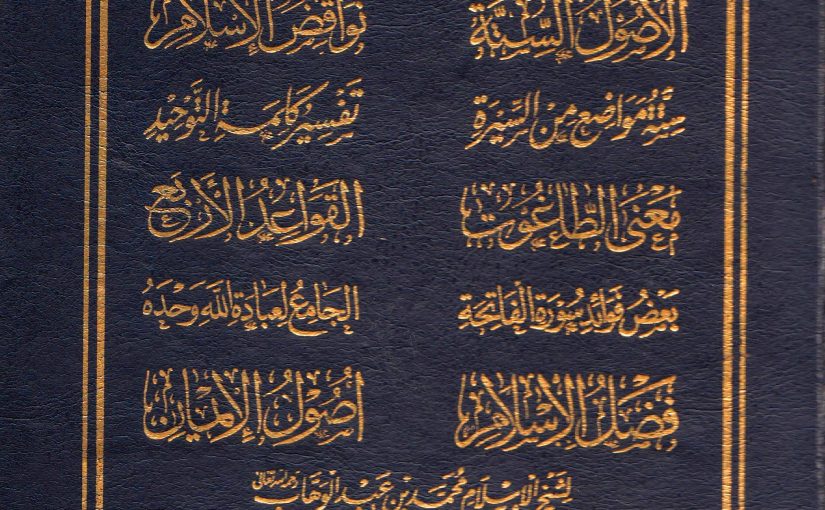 الأُصُولُ السِّتَّةُ نَوَاقِضُ الإِسْلَامِ
سِتَّةُ مَوَاضِعَ مِنَ السِّيرَةِ تَفْسِيرُ كَلِمَةِ التَّوْحِيدِ
مَعْنَى الطَّاغُوتِ القَوَاعِدُ الأَرْبَعُ
بَعْضُ فَوَائِدِ سُورَةِ الْفَاتِحَةِ الجَامِعُ لِعِبَادَةِ اللهِ وَحْدَهُ
فَضْلُ الإِسْلَامِ أُصُولُ الإِيمَانِ
لِشَيْخِ الإِسْلَامِ مُحَمَّد بْنِ عَبْدِ الْوَهَّابِ رحمه الله تعالى